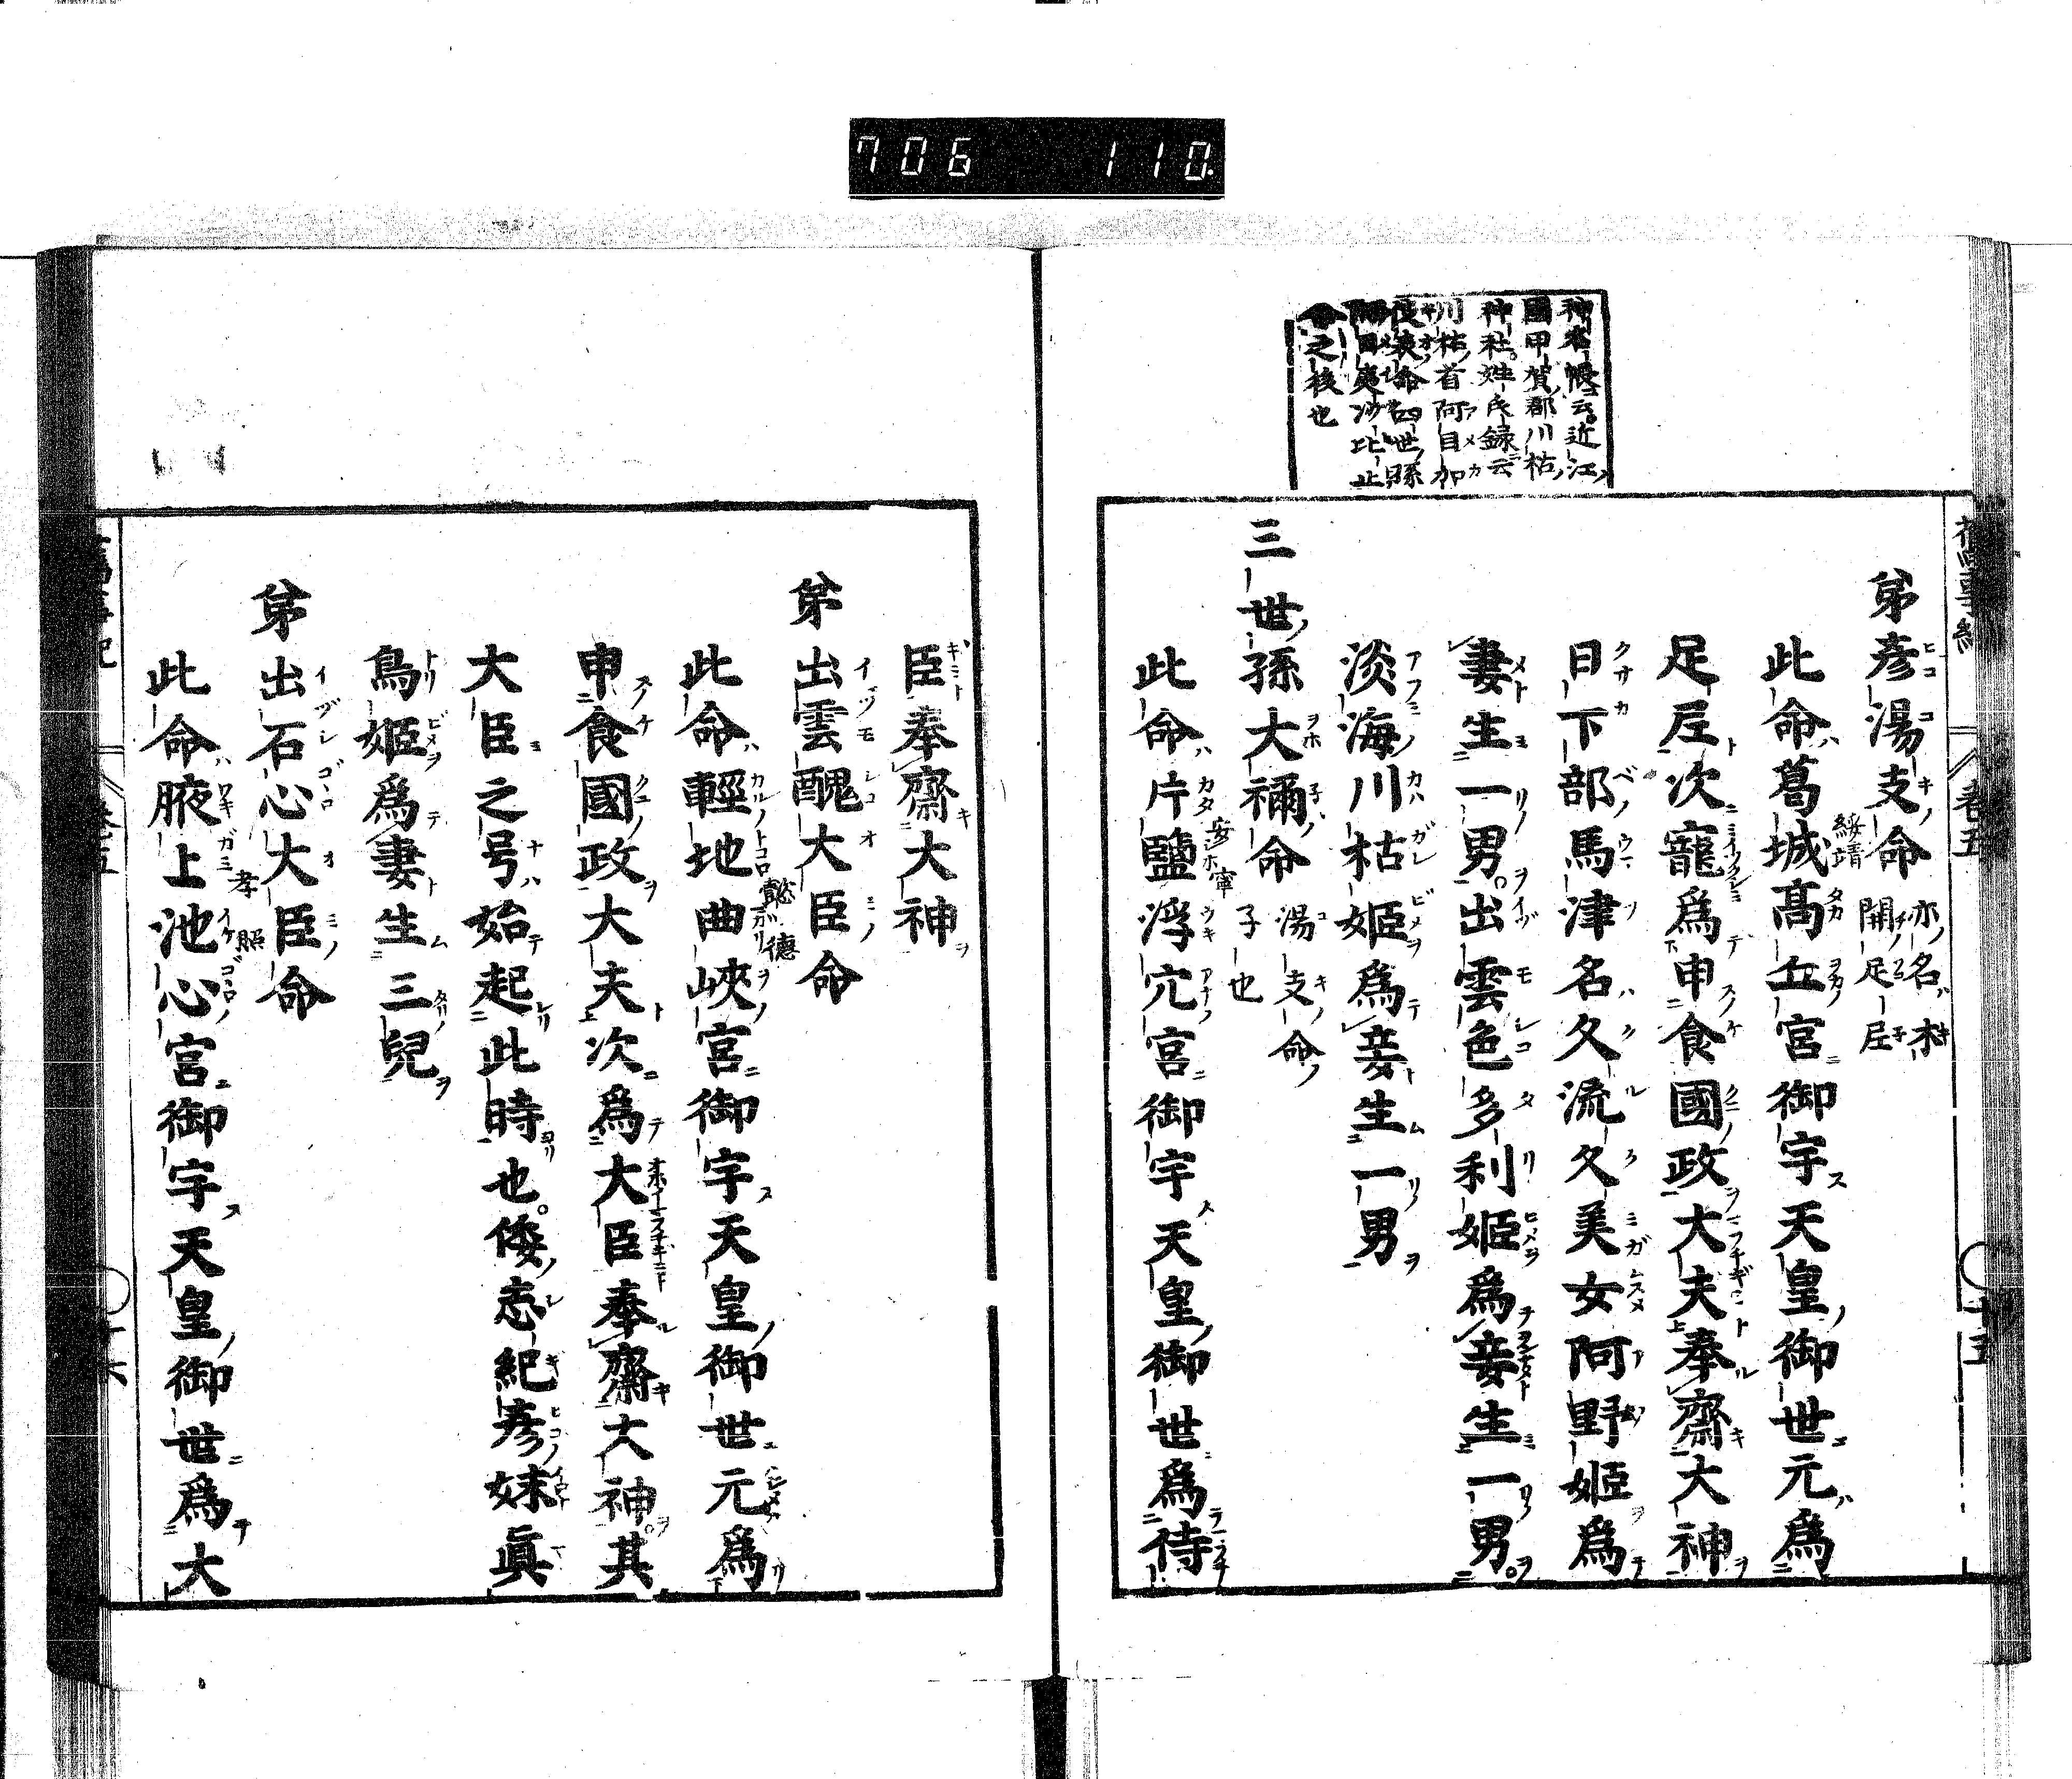 706 110
神名帳云近江
國甲賀郡川枯
神社姓氏録云
川枯首阿目加
伎表命四世孫
阿目夷沙比止
命之後也
弟彥湯支命 亦名木開足尼
此命葛城高丘宮御宇天皇御世元爲
綏靖
足尼次寵爲申食國政大夫奉齋大神
日下部馬津名久流久美女阿野姬爲
妻生一男出雲色多利姬爲妾生一男
淡海川枯姬爲妾生一男
三世孫大禰命 湯支命子也
此命片鹽浮穴宮御宇天皇御世爲侍
安寧
臣奉齋大神
弟出雲醜大臣命
此命輕地曲峽宮御宇天皇御世元爲
懿德
申食國政大夫次爲大臣奉齋大神其
大臣之号始起此時也倭志紀彥妹眞
鳥姬爲妻生三兒
弟出石心大臣命
此命腋上池心宮御宇天皇御世爲大
孝照
卷五
十五